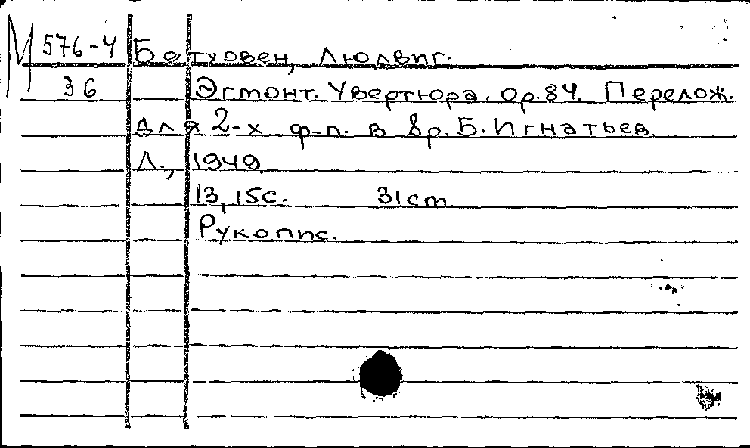 М 576-4 Бетховен, Людвиг.
Э6 Эгмонт. Увертюра. ор. 84. Перелож.
для 2-х ф-п. в 8р. Б. Игнатьев
Л., 1949
13, 15с. 31 cm
Рукопис.